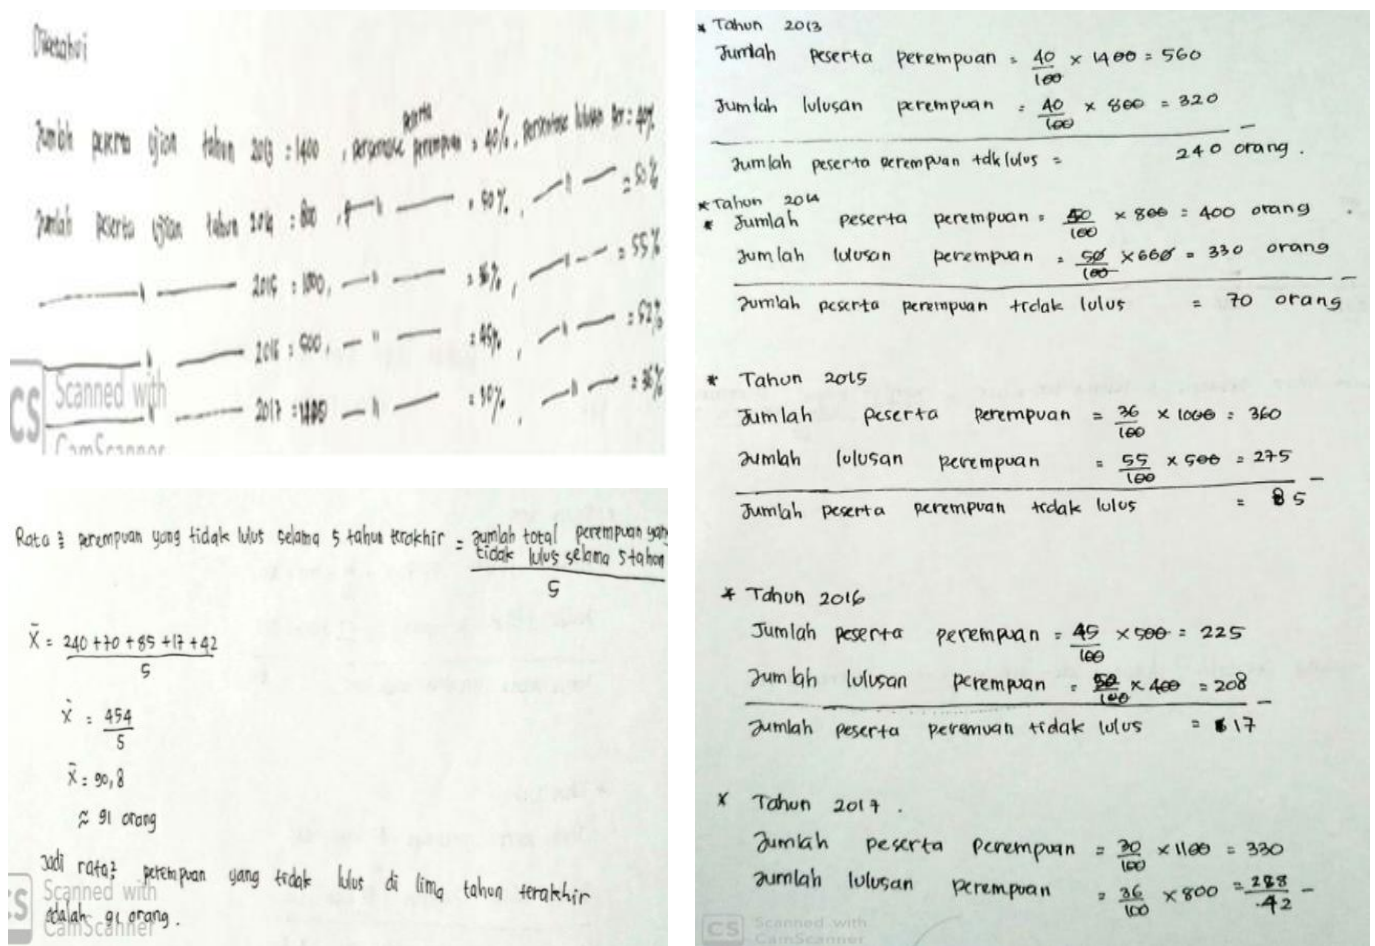 Diketahui
Jumlah peserta ujian tahun 2013 = 1400, persentase peserta perempuan = 40%, persentase lulusan per = 40%
Jumlah peserta ujian tahun 2014 = 800, —〃— = 50%, —〃— = 50%
—〃— 2015 = 1000, —〃— = 36%, —〃— = 55%
—〃— 2016 = 500, —〃— = 45%, —〃— = 52%
—〃— 2017 = 1100 —〃— = 30%, —〃— = 36%
CS Scanned with
CamScanner
Rata² perempuan yang tidak lulus selama 5 tahun terakhir = Jumlah total perempuan yang
tidak lulus selama 5 tahun
5
x̄ = 240 + 70 + 85 + 17 + 42
5
x̄ = 454
5
x̄ = 90,8
≈ 91 orang
Jadi rata² perempuan yang tidak lulus di lima tahun terakhir
adalah 91 orang.
CS Scanned with
CamScanner
* Tahun 2013
Jumlah peserta perempuan = 40/100 × 1400 = 560
Jumlah lulusan perempuan = 40/100 × 800 = 320
—
Jumlah peserta perempuan tdk lulus = 240 orang.
* Tahun 2014
* Jumlah peserta perempuan = 50/100 × 800 = 400 orang
Jumlah lulusan perempuan = 50/100 × 660 = 330 orang
—
Jumlah peserta perempuan tidak lulus = 70 orang
* Tahun 2015
Jumlah peserta perempuan = 36/100 × 1000 = 360
Jumlah lulusan perempuan = 55/100 × 500 = 275
—
Jumlah peserta perempuan tidak lulus = 85
* Tahun 2016
Jumlah peserta perempuan = 45/100 × 500 = 225
Jumlah lulusan perempuan = 52/100 × 400 = 208
—
Jumlah peserta peremuan tidak lulus = 17
x Tahun 2017.
Jumlah peserta perempuan = 30/100 × 1100 = 330
Jumlah lulusan perempuan = 36/100 × 800 = 288 —
42
CS Scanned with
CamScanner